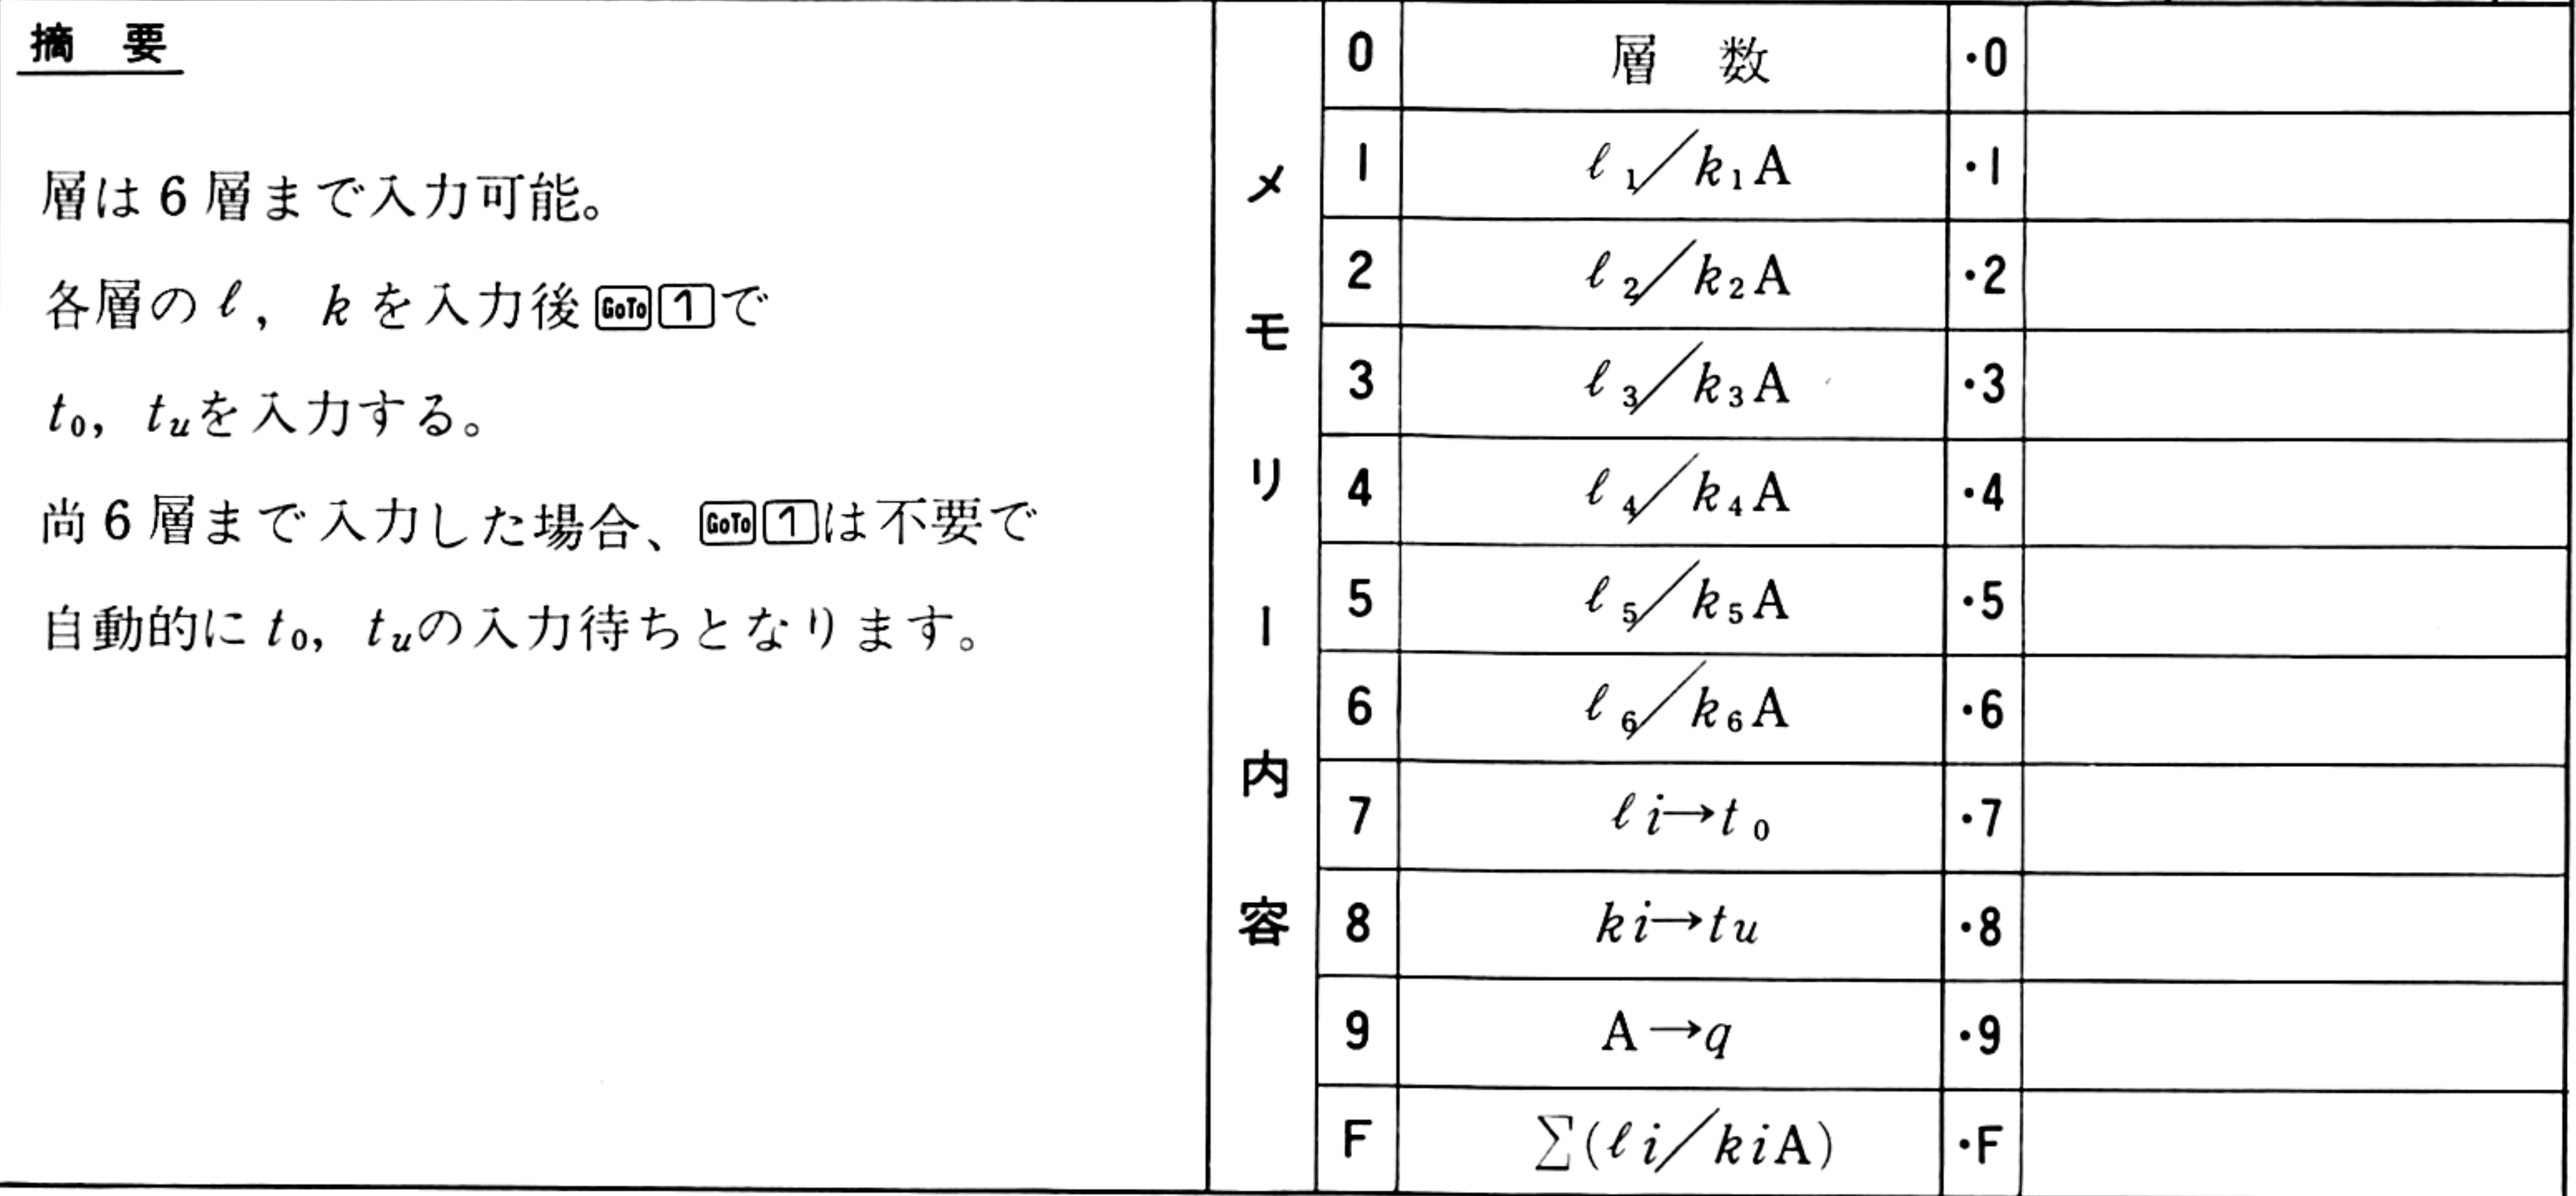 摘 要
層は6層まで入力可能。
各層のℓ, kを入力後GoTo 1で
t₀, tᵤを入力する。
尚6層まで入力した場合、GoTo 1は不要で
自動的にt₀, tᵤの入力待ちとなります。
メモリー内容
0 層 数 ・0
1 ℓ₁/k₁A ・1
2 ℓ₂/k₂A ・2
3 ℓ₃/k₃A ・3
4 ℓ₄/k₄A ・4
5 ℓ₅/k₅A ・5
6 ℓ₆/k₆A ・6
7 ℓi→t₀ ・7
8 ki→tu ・8
9 A→q ・9
F Σ(ℓi/kiA) ・F